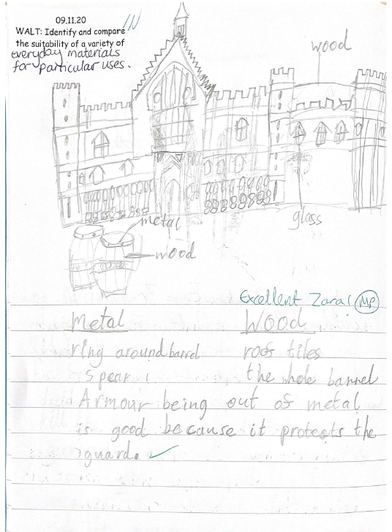 09.11.20
WALT: Identify and compare
the suitability of a variety of
everyday materials
for particular uses.
wood
glass
metal
wood
Excellent Zara! MP
Metal Wood
ring around barrel roof tiles
Spear the whole barrel
Armour being out of metal
is good because it protects the
guard.